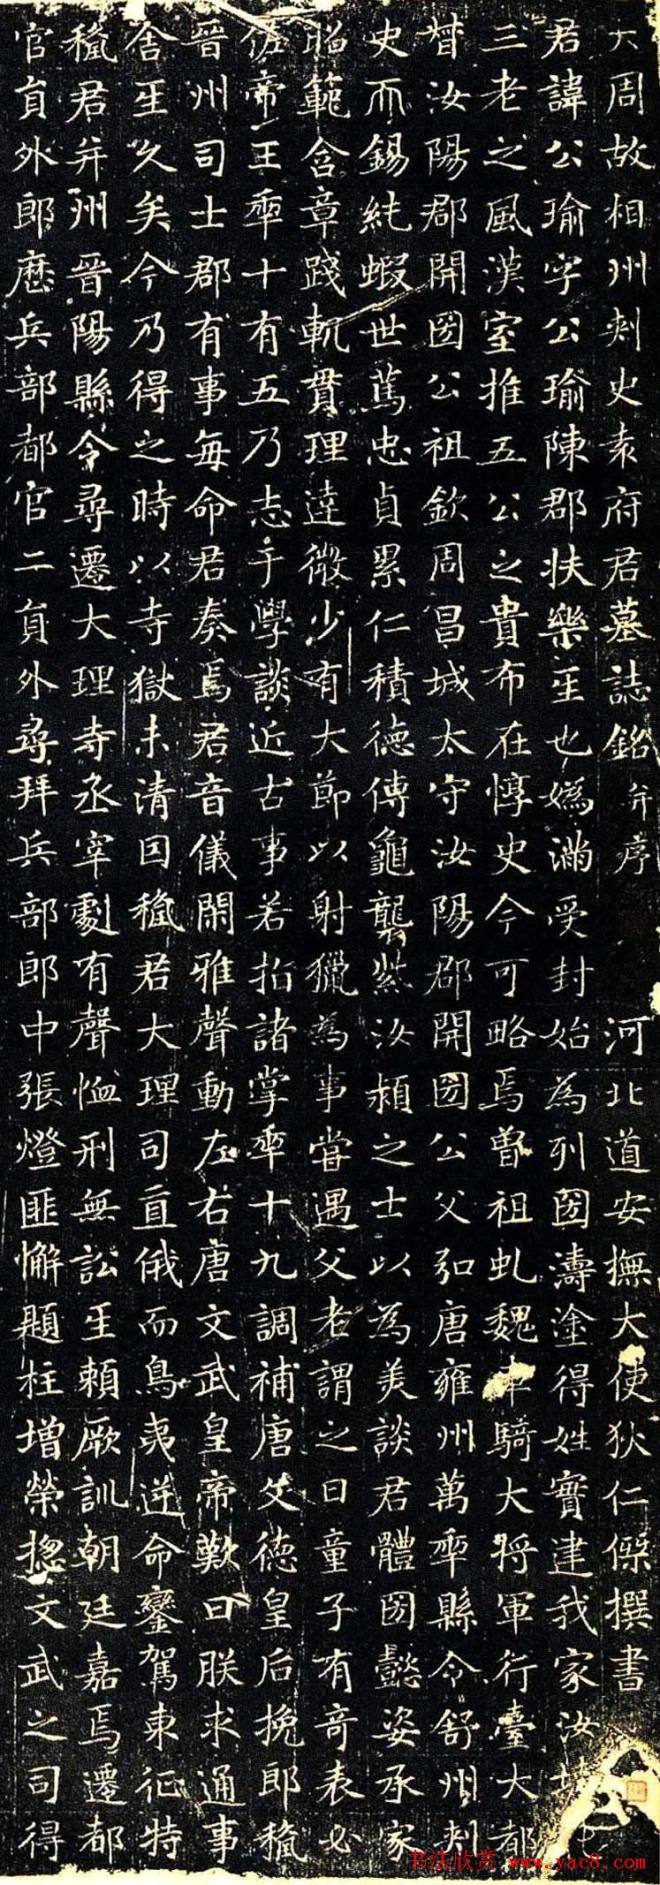 大周故相州刺史袁府君墓誌銘并序 河北道安撫大使狄仁傑撰書
君諱公瑜字公瑜陳郡扶樂𤯔也媯滿受封始為列圀濤塗得姓實建我家汝墳
三老之風漢室推五公之貴布在惇史今可略焉曾祖虬魏車騎大將軍行臺大都
督汝陽郡開圀公祖欽周昌城太守汝陽郡開圀公父弘唐雍州萬𠡦縣令舒州刺
史而錫純蝦世篤忠貞累仁積德傳龜襲紫汝潁之士以為美談君體圀懿姿承家
昭範含章踐軌貫理達微少有大節以射獵為事嘗遇父老謂之曰童子有奇表必
佐帝王𠡦十有五乃志于學談近古事若指諸掌𠡦十九調補唐文德皇后挽郎稍
晉州司士郡有事每命君奏焉君音儀閑雅聲動左右唐文武皇帝歎曰朕求通事
舍𤯔久矣今乃得之時以寺獄未清因稍君大理司直俄而鳥夷逆命鑾駕東征特
稍君并州晉陽縣令尋遷大理寺丞宰劇有聲恤刑無訟𤯔賴厥訓朝廷嘉焉遷都
官員外郎歷兵部都官二員外尋拜兵部郎中張燈匪懈題柱增榮揔文武之司得
书法欣赏 www.yac8.com